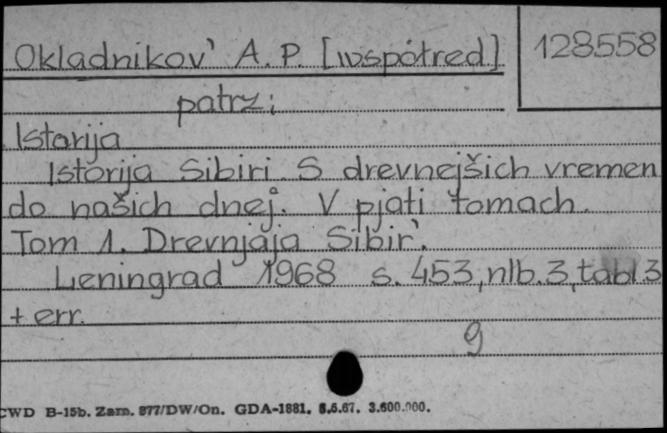 Okladnikov' A. P. [współred]
128558
patrz:
Istorija
Istorija Sibiri. S drevnejšich vremen
do našich dnej. V pjati tomach.
Tom 1. Drevnjaja Sibir'.
Leningrad 1968 s. 453, nlb. 3, tabl. 3
+ err.
9
CWD B-15b. Zam. 877/DW/On. GDA-1881. 5.5.67. 3.600.000.